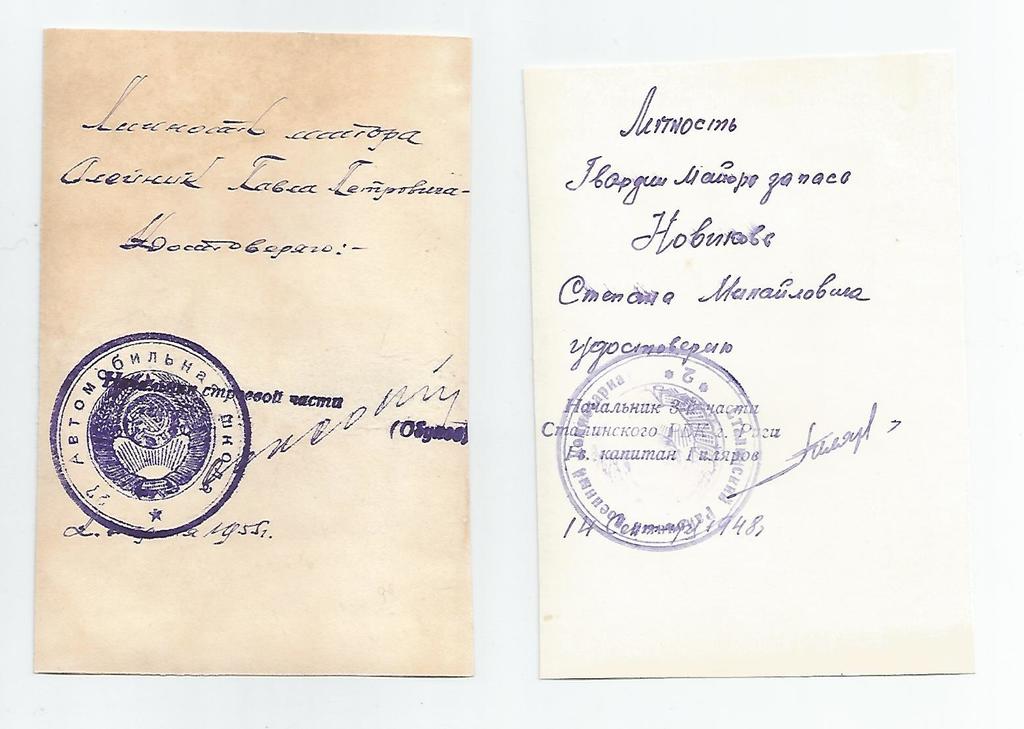 Личность майора
Олейник Павла Петровича-
Удостоверяю:-
27 Автомобильная школа
Начальник строевой части
(Обухов)
2. 1955г.
Личность
Гвардии Майора запаса
Новикова
Степана Михайловича
удостоверяю
Начальник 3-й части
Сталинского РВК г. Риги
Гв. капитан Гиляров
Сталинский Районный Военный Комиссариат * 2 *
14 Сентября 1948г